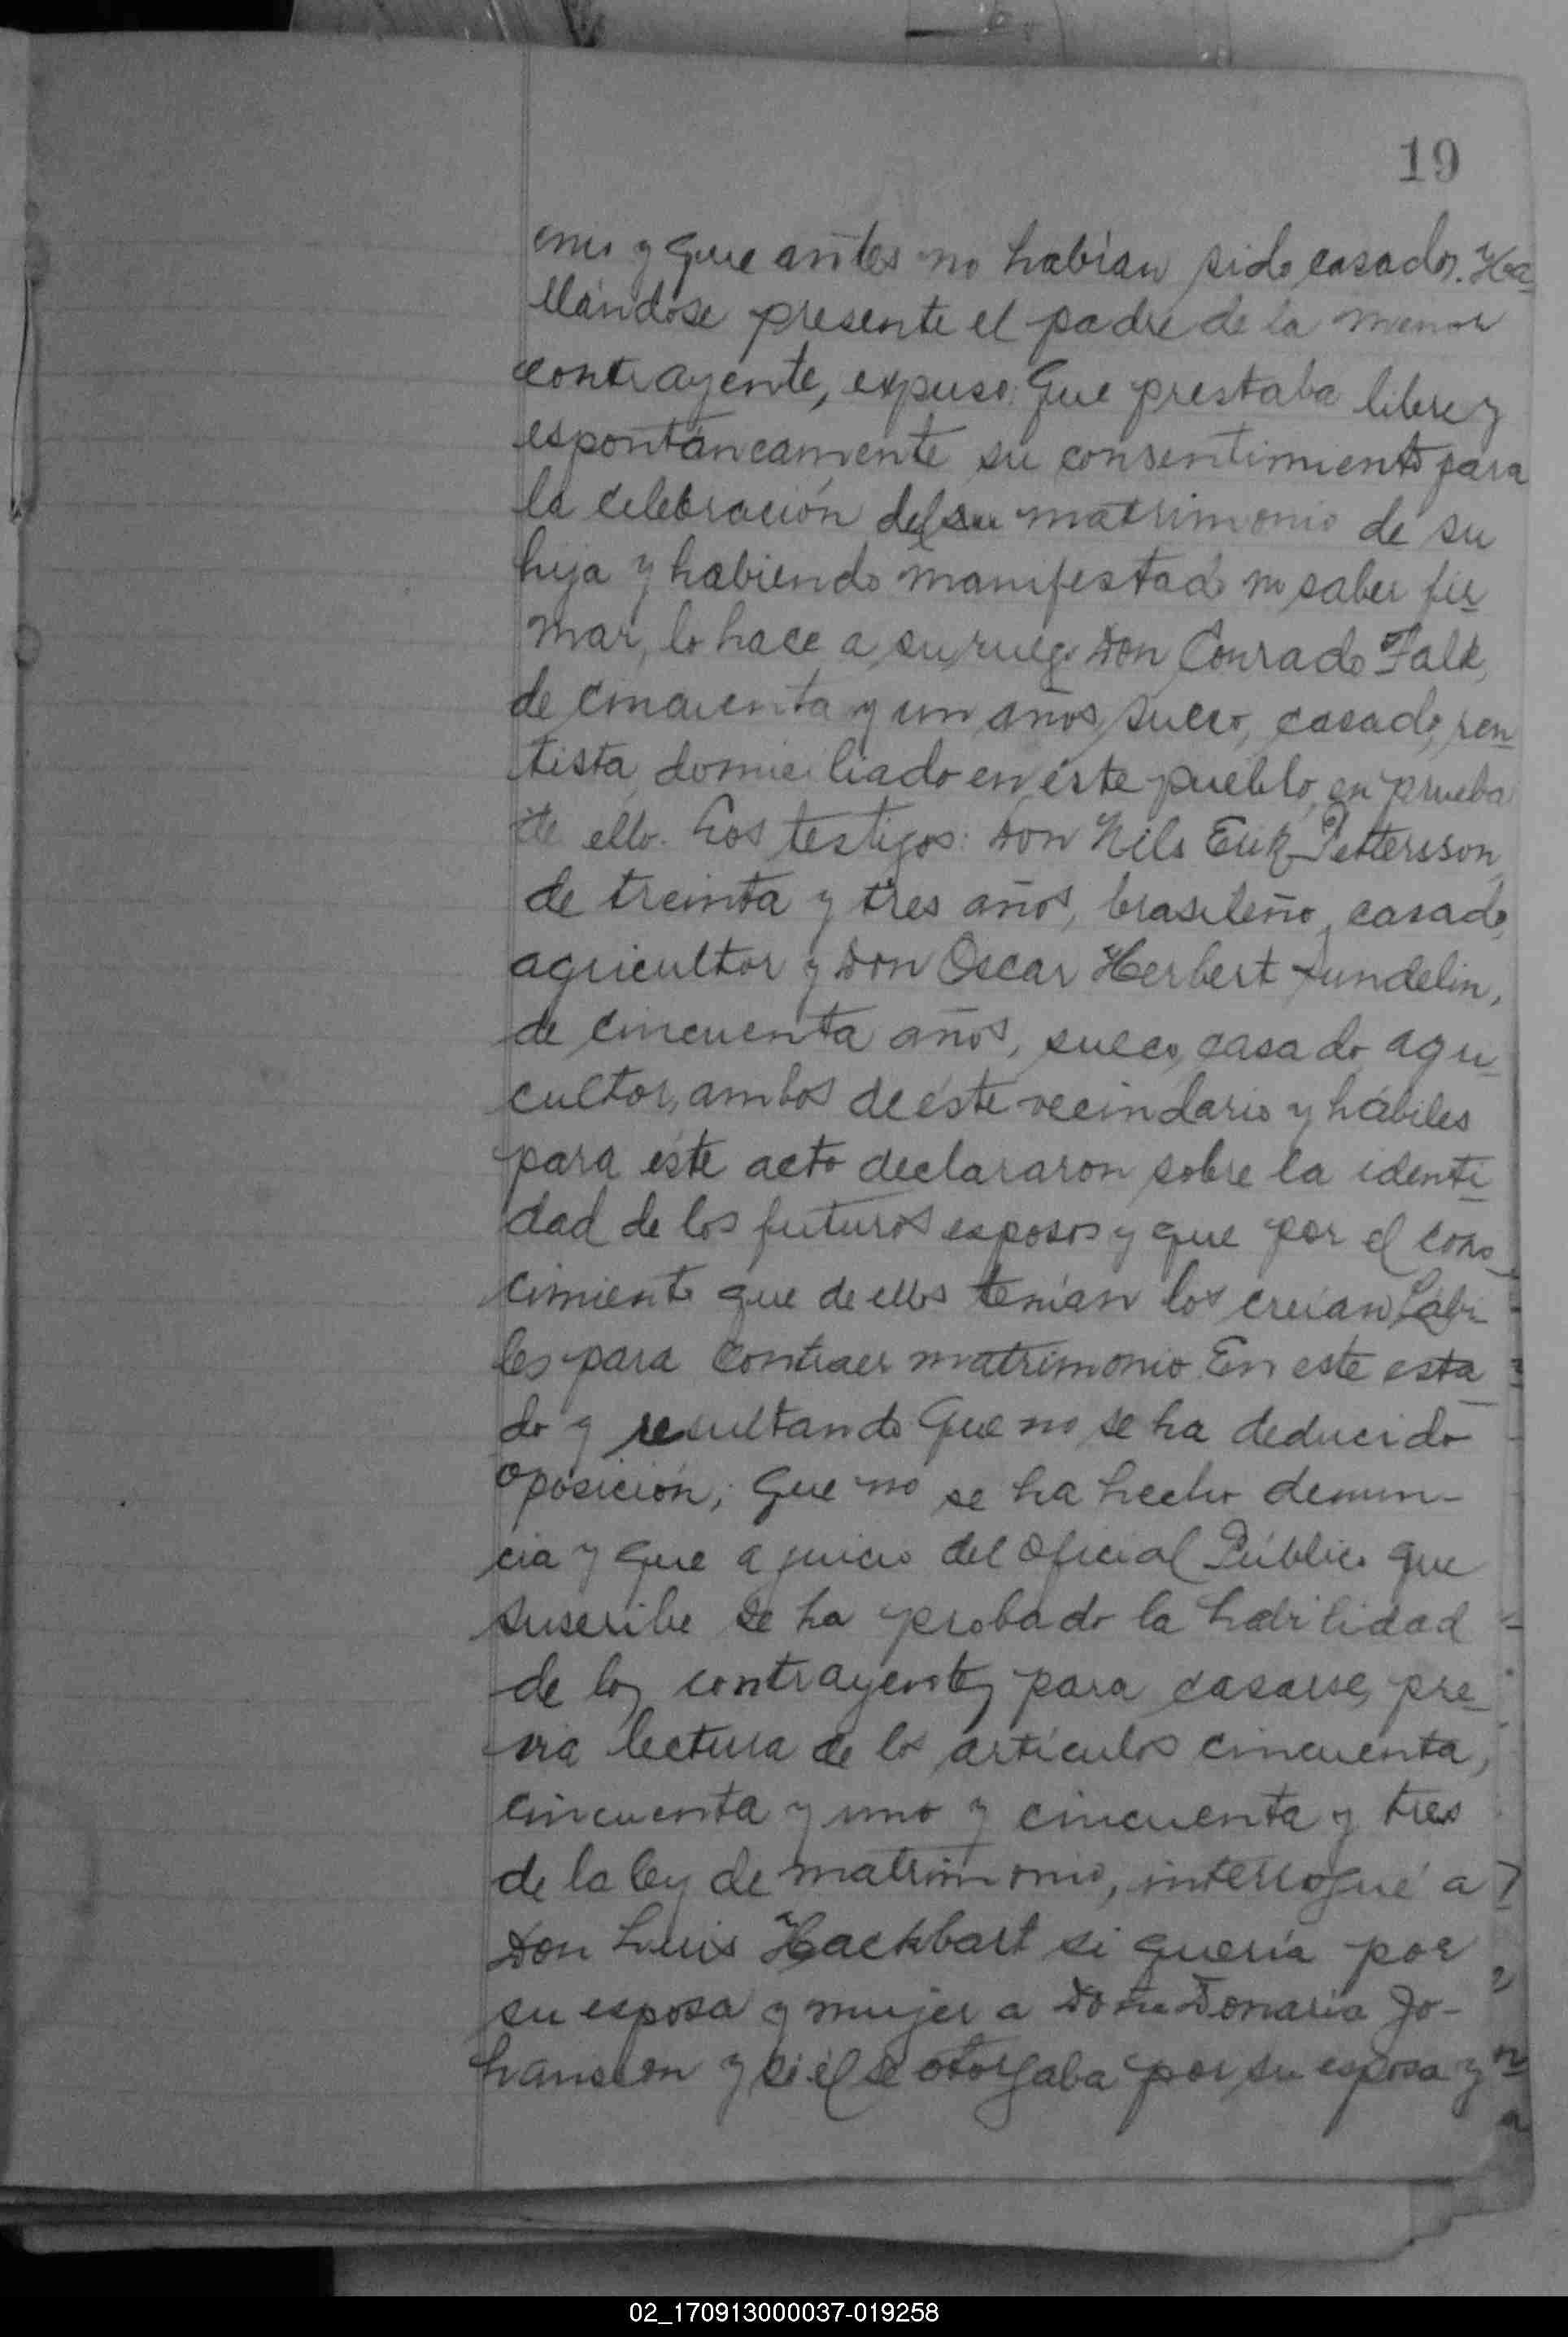 19
y que antes no habían sido casados. Ha-
llándose presente el padre de la menor
contrayente, expuso: Que prestaba libre y
espontáneamente su consentimiento para
la celebración del su matrimonio de su
hija y habiendo manifestado no saber fir-
mar, lo hace a su ruego Don Conrado Falk,
de cincuenta y un años, sueco, casado, ren-
tista, domiciliado en éste pueblo, en prueba
de ello. Los testigos: Don Nils Erik Pettersson,
de treinta y tres años, brasileño, casado,
agricultor y Don Oscar Herbert Sundelin,
de cincuenta años, sueco, casado, agri-
cultor, ambos de éste vecindario y hábiles
para éste acto declararon sobre la identi-
dad de los futuros esposos y que por el cono-
cimiento que de ellos tenían los creían hábi-
les para contraer matrimonio. En este esta-
do y resultando Que no se ha deducido
oposición; Que no se ha hecho denun-
cia y Que a juicio del Oficial Público que
suscribe se ha probado la habilidad
de los contrayentes para casarse, pre-
via lectura de los artículos cincuenta,
cincuenta y uno y cincuenta y tres
de la ley de matrimonio, interrogué a
Don Luis Hackbart si quería por
su esposa y mujer a Doña Donaria Jo-
hansson y si él se otorgaba por su esposa y
02_170913000037-019258